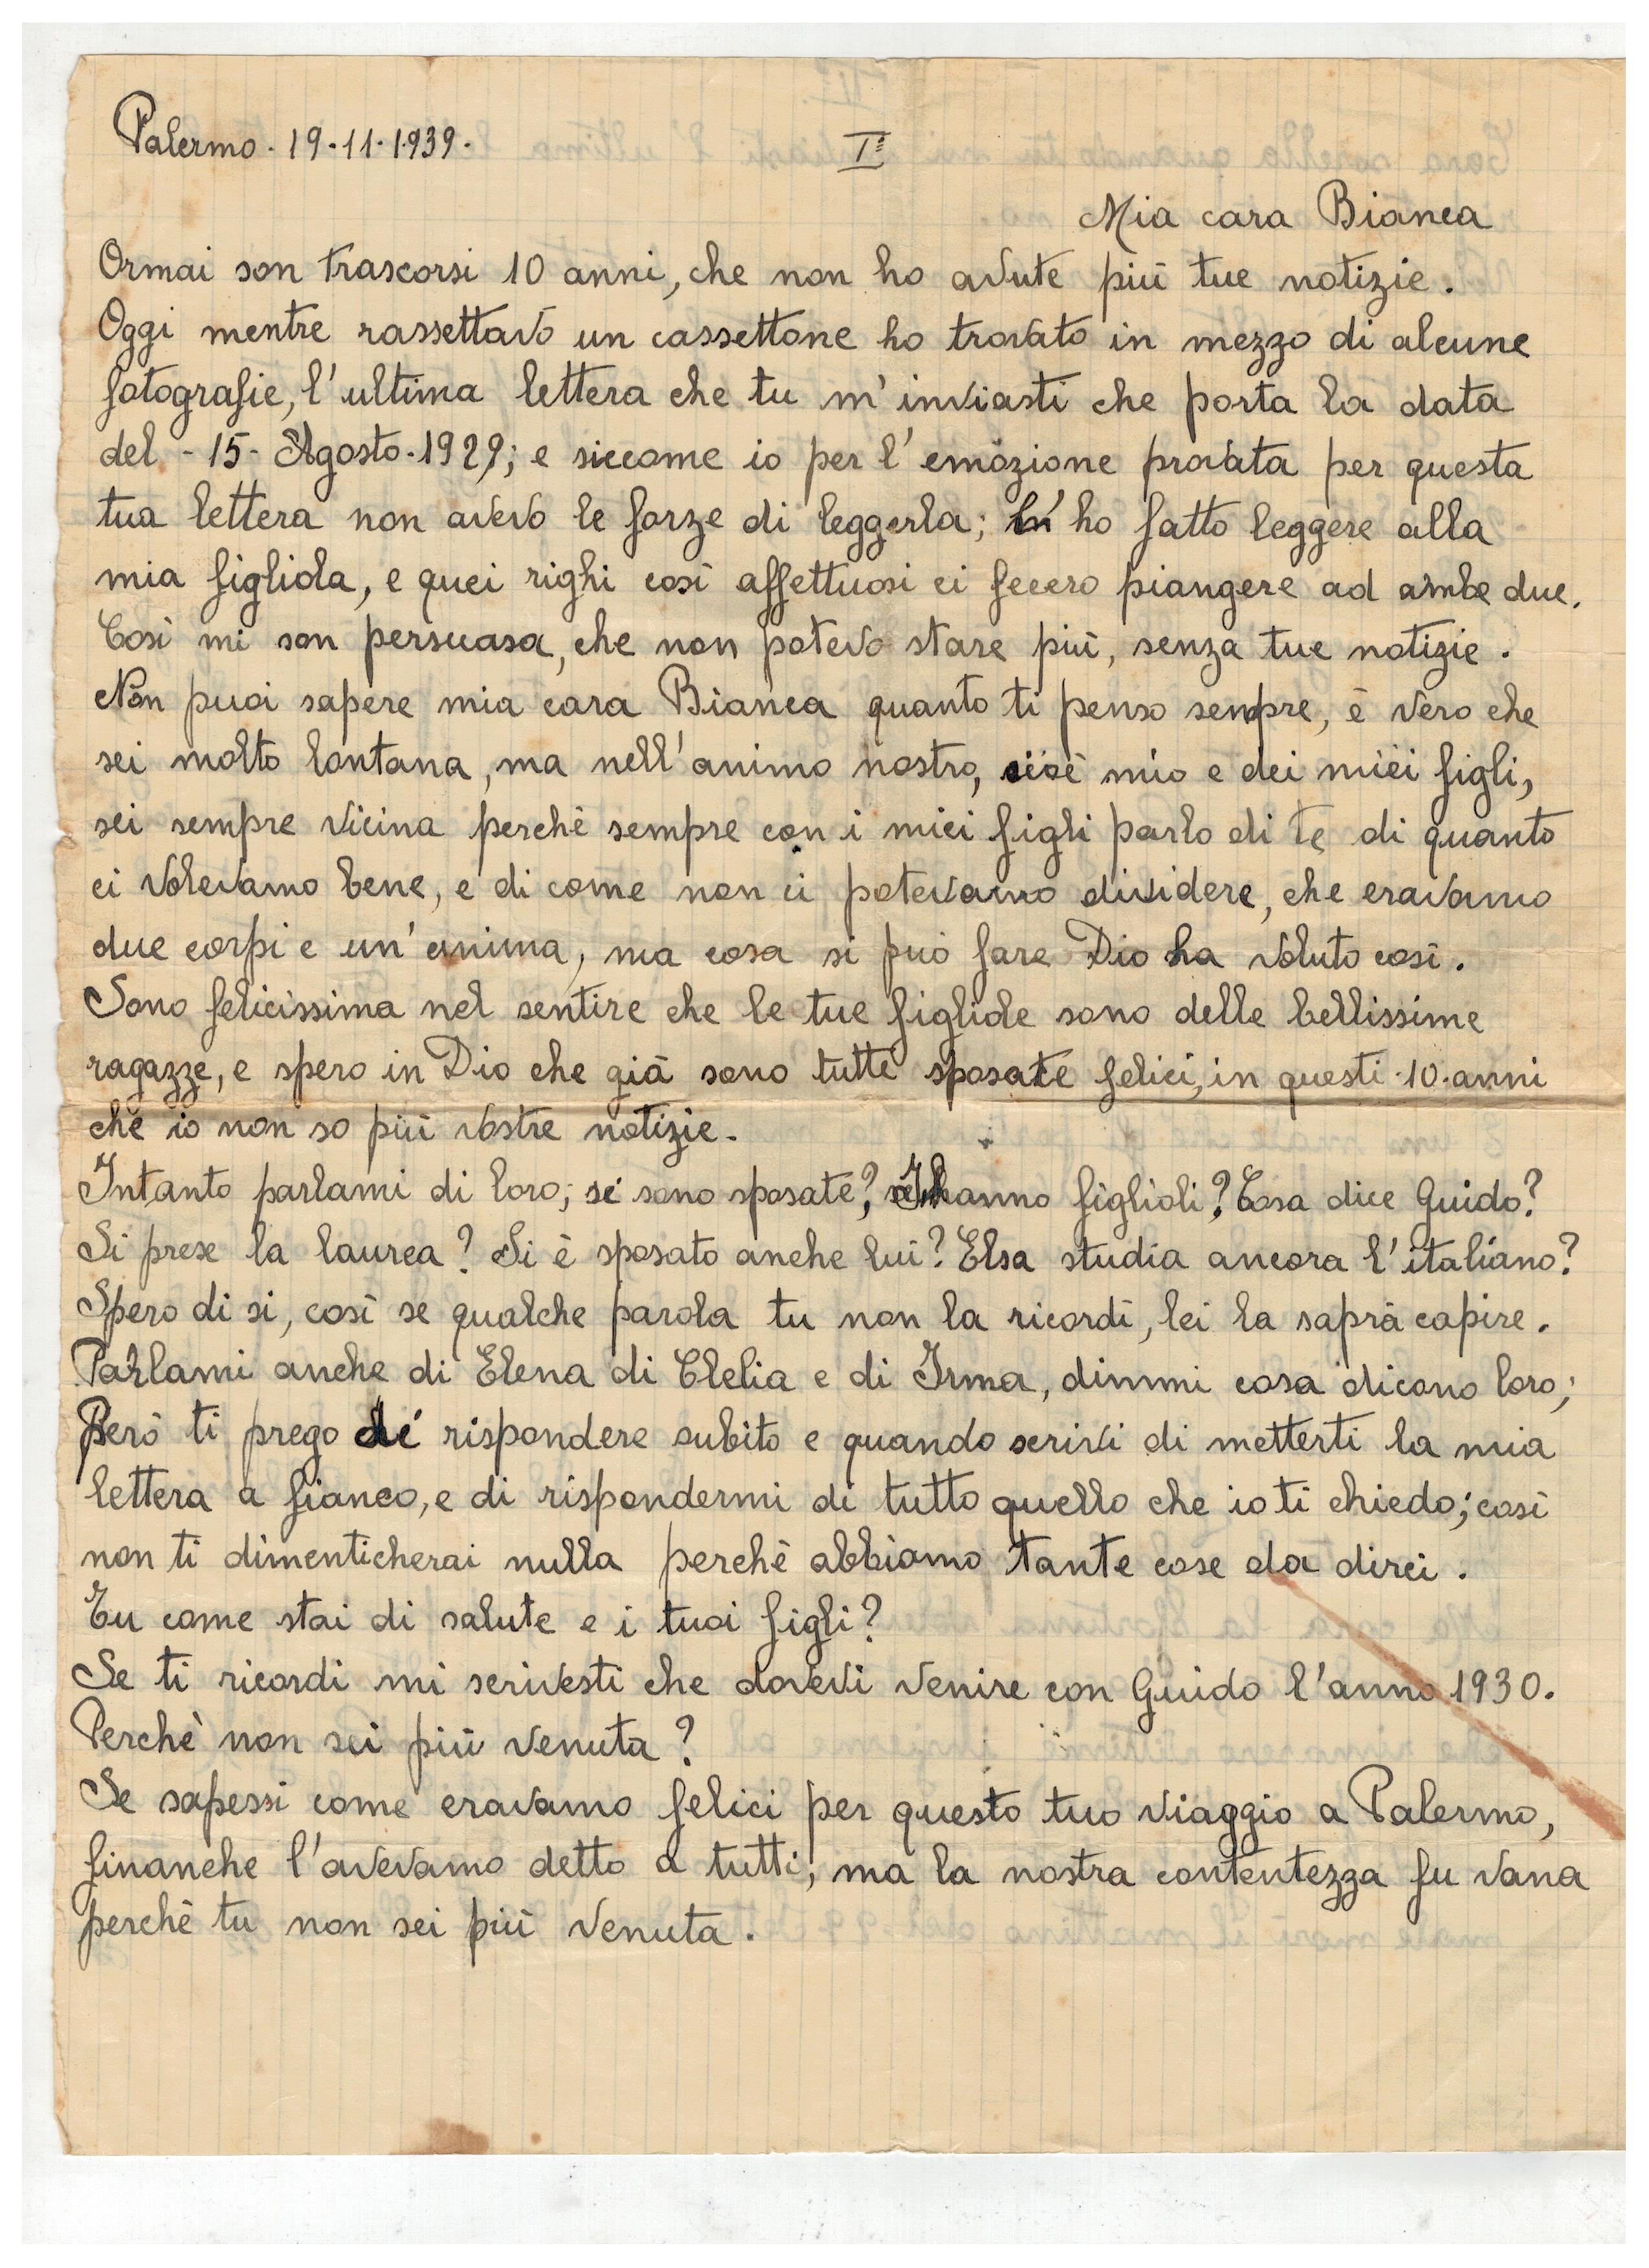 Palermo. 19.11.1939.
I°
Mia cara Bianca
Ormai son trascorsi 10 anni, che non ho avute più tue notizie.
Oggi mentre rassettavo un cassettone ho trovato in mezzo di alcune
fotografie, l'ultima lettera che tu m'inviasti che porta la data
del - 15 - Agosto - 1929; e siccome io per l'emozione provata per questa
tua lettera non avevo le forze di leggerla; ho fatto leggere alla
mia figliola, e quei righi così affettuosi ci fecero piangere ad ambe due.
Così mi son persuasa, che non potevo stare più, senza tue notizie.
Non puoi sapere mia cara Bianca quanto ti penso sempre, è vero che
sei molto lontana, ma nell'animo nostro, cioè mio e dei miei figli,
sei sempre vicina perchè sempre con i miei figli parlo di te di quanto
ci volevamo bene, e di come non ci potevamo dividere, che eravamo
due corpi e un'anima, ma cosa si può fare Dio ha voluto così.
Sono felicissima nel sentire che le tue figliole sono delle bellissime
ragazze, e spero in Dio che già sono tutte sposate felici, in questi 10. anni
che io non so più vostre notizie.
Intanto parlami di loro; si sono sposate? hanno figlioli? Cosa dice Guido?
Si prese la laurea? Si è sposato anche lui? Elsa studia ancora l'italiano?
Spero di si, così se qualche parola tu non la ricordi, lei la saprà capire.
Parlami anche di Elena di Clelia e di Irma, dimmi cosa dicono loro;
Però ti prego di rispondere subito e quando scrivi di metterti la mia
lettera a fianco, e di rispondermi di tutto quello che io ti chiedo; così
non ti dimenticherai nulla perchè abbiamo tante cose da dirci.
Tu come stai di salute e i tuoi figli?
Se ti ricordi mi scrivesti che dovevi venire con Guido l'anno 1930.
Perchè non sei più venuta?
Se sapessi come eravamo felici per questo tuo viaggio a Palermo,
finanche l'avevamo detto a tutti; ma la nostra contentezza fu vana
perchè tu non sei più venuta.